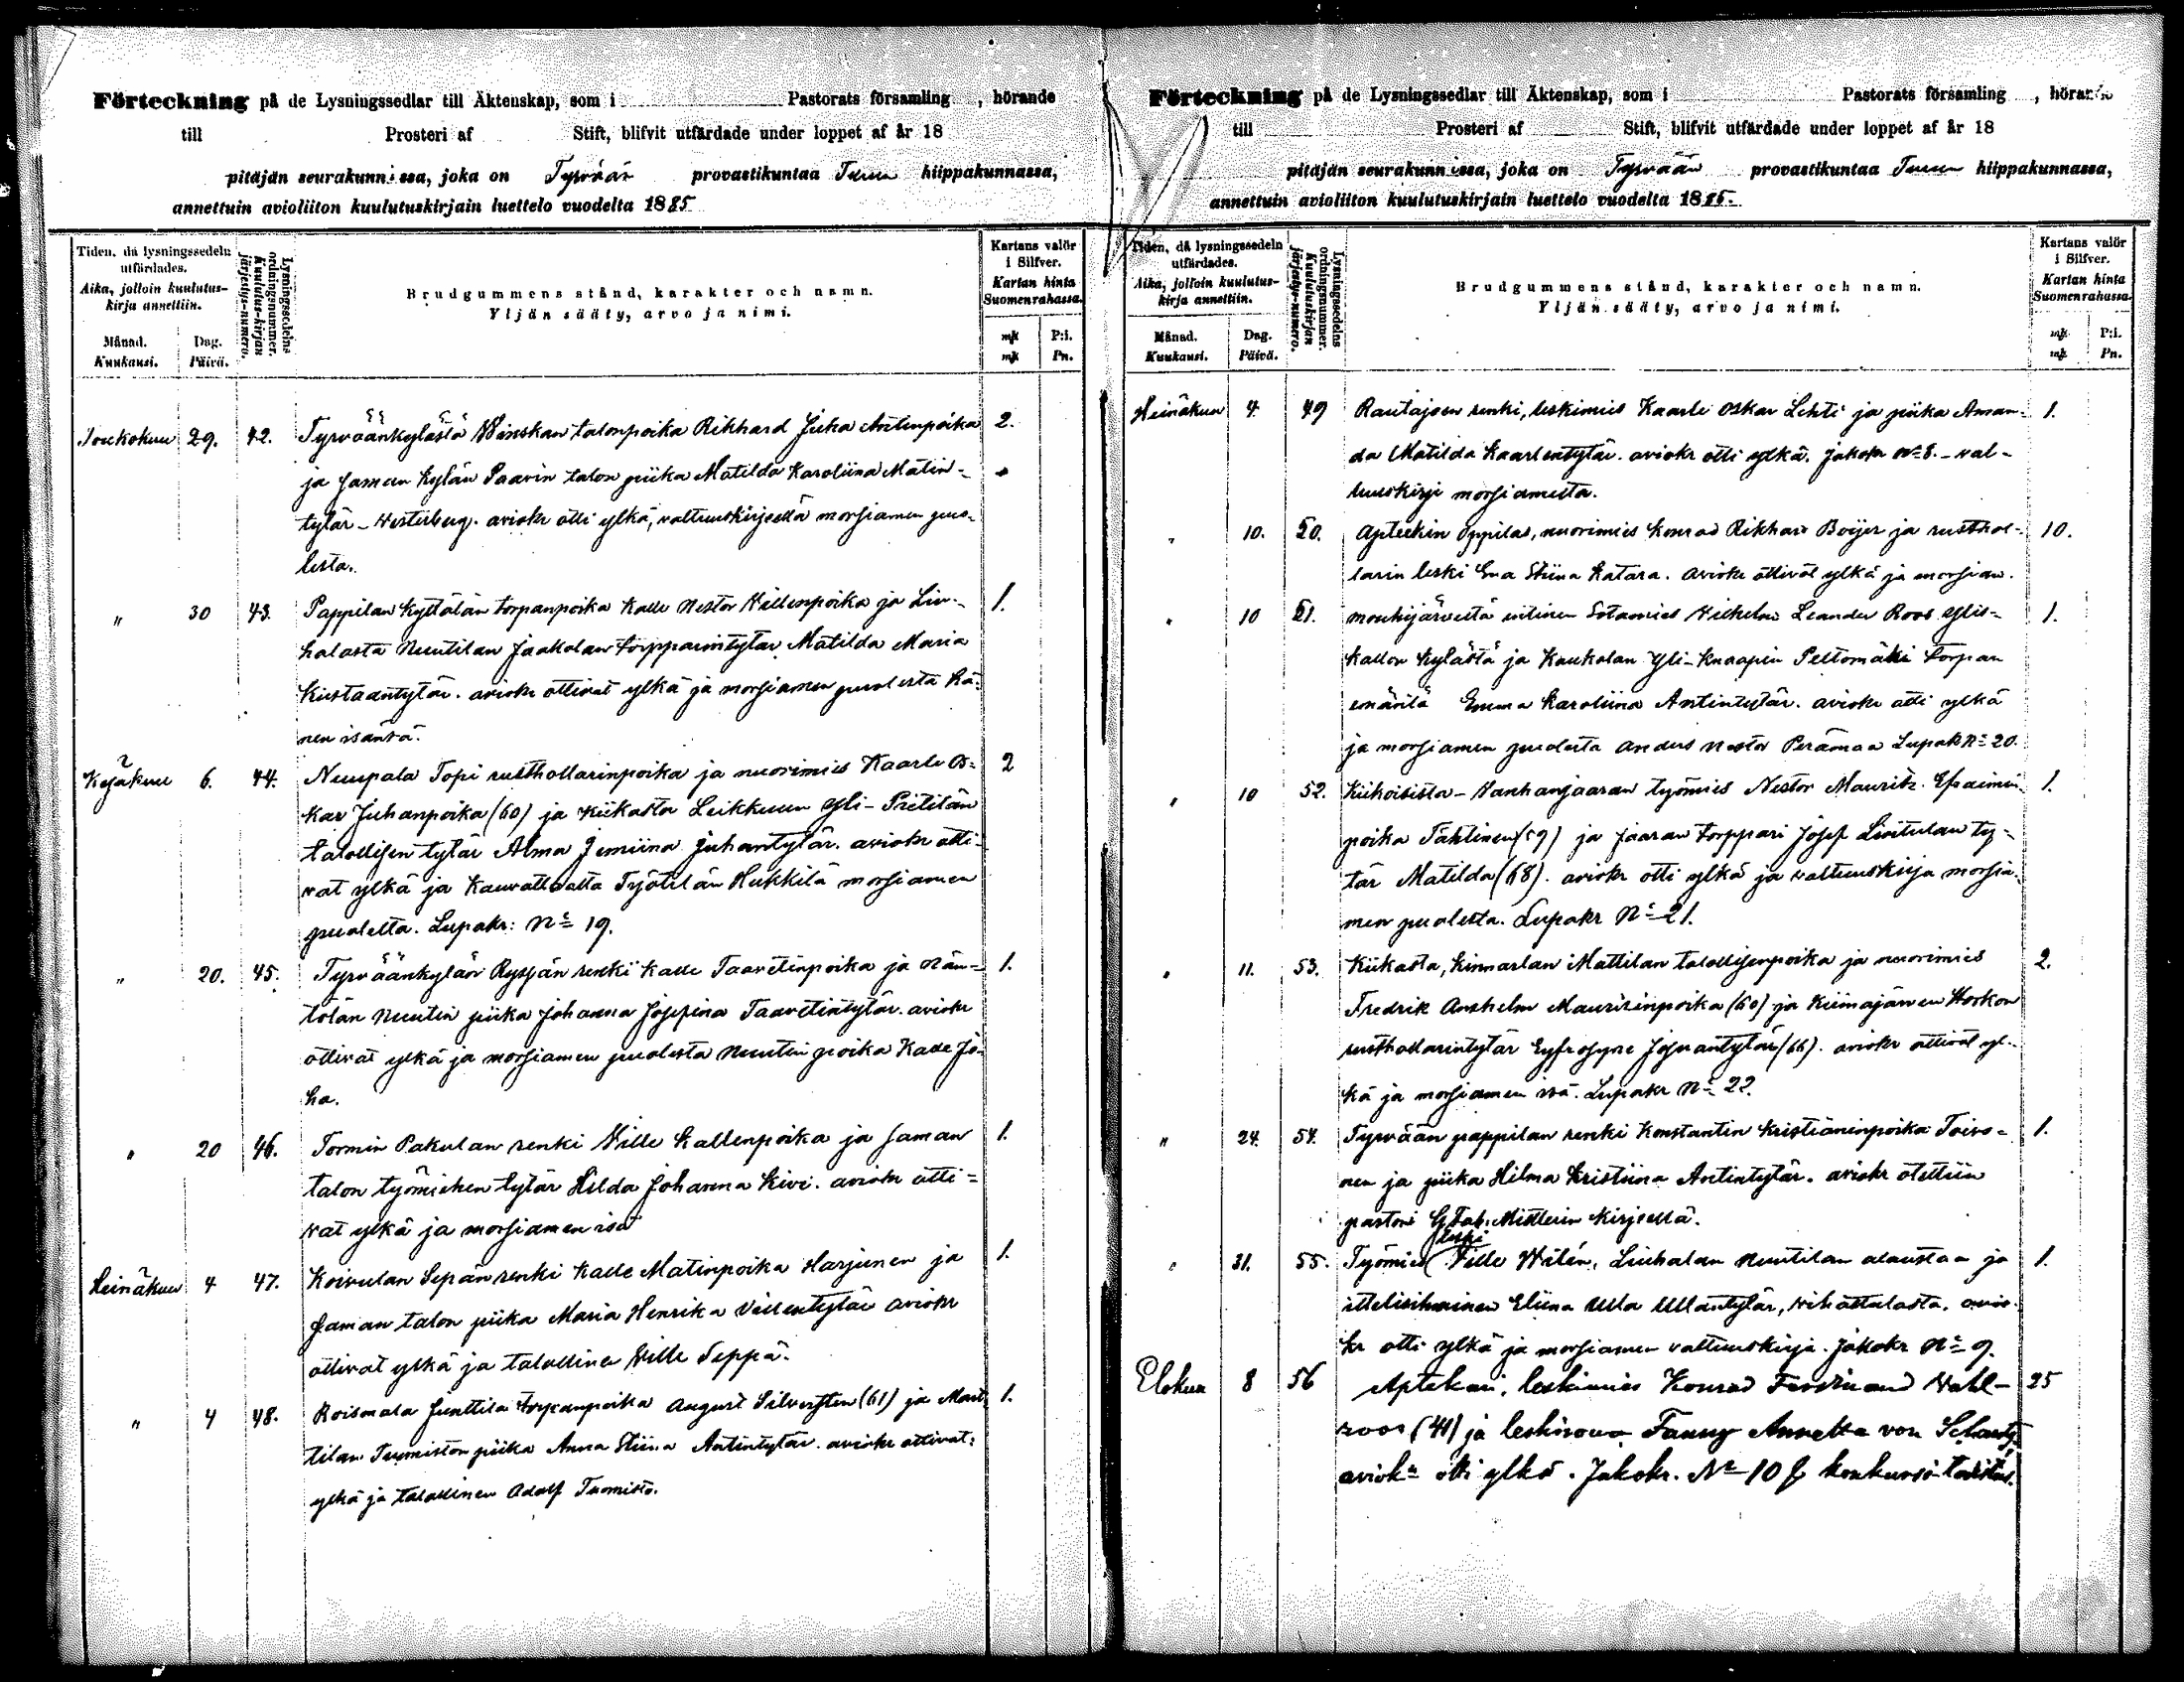 Förteckning på de Lysningssedlar till Äktenskap, som i Pastorats församling , hörande
till Prosteri af Stift, blifvit utfärdade under loppet af år 18
pitäjän seurakunnissa, joka on Tyrvään provastikuntaa Turun hiippakunnassa,
annettuin avioliiton kuulutuskirjain luettelo vuodelta 1885.
Tiden, då lysningssedeln utfärdades.
Aika, jolloin kuulutus-kirja annettiin.
Månad. Dag.
Kuukausi. Päivä.
Lysningssedelns ordningsnummer.
Kuulutus-kirjan järjestys-numero.
Brudgummens stånd, karakter och namn.
Yljän sääty, arvo ja nimi.
Kartans valör i Silfver.
Kartan hinta Suomenrahassa.
mk P:i.
mk Pn.
Toukokuu 29. 42. Tyrväänkylästä Winskan talonpoika Rikhard Juha Antinpoika 2.
ja Jaman kylän Paavin talon piika Matilda Karoliina Matin-
tytär - Westerberg. aviokr otti ylkä, valtuuskirjeellä morsiamen puo-
lesta.
" 30 43. Pappilan Kyttälän torpanpoika Kalle Nestor Villenpoika ja Liu- 1.
halasta Nuutilan Jaakolan torpparintytar Matilda Maria
Kustaantytär. aviokr ottivat ylkä ja morsiamen puolesta hä-
nen isäntä.
Kesäkuu 6. 44. Nuupala Topi rusthollarinpoika ja nuorimies Kaarle Os- 2
kar Juhanpoika (60) ja Kiikasta Leikkuun Yli-Pietilän
talollisen tytär Alma Jemiina Juhantytär. aviokr otti-
vat ylkä ja Kauvatsalta Työtilän Hukkilä morsiamen
puolelta. Lupakr: No 19.
" 20. 45. Tyrväänkylän Ryssän renki Kalle Taavetinpoika ja Nän- 1.
tölän Nuutin piika Johanna Josefina Taavetintytär. aviokr
ottivat ylkä ja morsiamen puolesta Nuutin poika Kalle Ju-
ha.
" 20 46. Tormin Pakulan renki Wille Kallenpoika ja Jaman 1.
talon työmiehen tytär Hilda Johanna Kivi. aviokr otti-
vat ylkä ja morsiamen isä
Heinäkuu 4 47. Koivulan Sepän renki Kalle Matinpoika Harjunen ja 1.
Jaman talon piika Maria Henrika Villentytär aviokr
ottivat ylkä ja talollinen Wille Seppä.
" 4 48. Roismala Junttila torpanpoika August Silvesten (61) ja Mart- 1.
tilan Tuomiston piika Anna Stiina Antintytär. aviokr ottivat:
ylkä ja talollinen Adolf Tuomisto.
Förteckning på de Lysningssedlar till Äktenskap, som i Pastorats församling , hörande
till Prosteri af Stift, blifvit utfärdade under loppet af år 18
pitäjän seurakunnissa, joka on Tyrvään provastikuntaa Turun hiippakunnassa,
annettuin avioliiton kuulutuskirjain luettelo vuodelta 1885.
Tiden, då lysningssedeln utfärdades.
Aika, jolloin kuulutus-kirja annettiin.
Månad. Dag.
Kuukausi. Päivä.
Lysningssedelns ordningsnummer.
Kuulutus-kirjan järjestys-numero.
Brudgummens stånd, karakter och namn.
Yljän sääty, arvo ja nimi.
Kartans valör i Silfver.
Kartan hinta Suomenrahassa.
mk P:i.
mk Pn.
Heinäkuu 4 49 Rautajoen renki, leskimies Kaarle Oskar Lehti ja piika Aman- 1.
da Matilda Kaarlentytär. aviokr otti ylkä. Jakokr No 8. - val-
tuuskirje morsiamesta.
" 10. 50. Apteekin oppilas, nuorimies Konrad Rikhard Boijer ja rusthol- 10.
larin leski Eva Stiina Katara. aviokr ottivat ylkä ja morsian.
" 10 51. Mouhijärveltä entinen Sotamies Wilhelm Leander Roos Ylis- 1.
kallon kylästä ja Kaukolan Yli-Knaapin Peltomäki torpan
emäntä Emma Karoliina Antintytär. aviokr otti ylkä
ja morsiamen puolesta Anders Nestor Perämaa Lupakr No 20.
" 10 52. Kiikoisista - Vanhanjaaran työmies Nestor Mauritz Efraimin- 1.
poika Tähtinen (59) ja Jaaran torppari Josef Livitulan ty-
tär Matilda (68). aviokr otti ylkä ja valtuuskirja morsia-
men puolesta. Lupakr No 21.
" 11. 53. Kiikasta, Kinnarlan Mattilan talollisenpoika ja nuorimies 2.
Fredrik Anshelm Mauritsinpoika (60) ja Kiimajärven Horkon
rusthollarintytär Eyfrosyne Josuantytär (66). aviokr ottivat yl-
kä ja morsiamen isä. Lupakr No 22.
" 24. 54. Tyrvään pappilan renki Konstantin Kristianinpoika Toivo- 1.
nen ja piika Hilma Kristiina Antintytär. aviokr otettiin
pastori G Fab. Mittlerin kirjeellä.
" 31. 55. Työmies leski Wille Widén, Liuhalan Nuutilan alaustaa ja 1.
ittellisihminen Eliina Ulla Ullantytär, Vihattulasta. avio-
kr otti ylkä ja morsiamen valtuuskirja. Jakokr No 9.
Elokuu 8 56 Aptekari, leskimies Konrad Ferdinand Wahl- 25
roos (41) ja leskirouva Fanny Annette von Schantz
aviokr otti ylkä. Jakokr. No 10 & konkurssi-todistus.